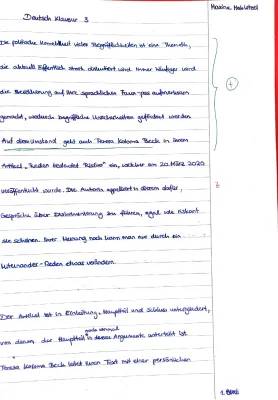 Maxine Mablutsel
Deutsch Klausur 3
Die politische Korrektheit vieler Begrifflichkeiten ist eine Thematik,
die aktuell öffentlich stark diskutiert wird. Immer häufiger wird
die Bevölkerung auf ihre sprachlichen Faux-pas aufmerksam
gemacht, wodurch begriffliche Unsicherheiten gefördert werden.
Auf diesen Umstand geht auch Teresa Koloma Beck in ihrem
Artikel „Reden bedeutet Risiko" ein, welcher am 20. März 2020
veröffentlicht wurde. Die Autorin appelliert in diesem dafür,
Gespräche über Diskriminierung zu führen, egal wie riskant
sie scheinen. Ihrer Meinung nach kann man nur durch ein
Miteinander-Reden etwas verändern.
Der Artikel ist in Einleitung, Hauptteil und Schluss untergliedert,
von denen der Hauptteil in Argumente unterteilt ist
Teresa Koloma Beck leitet ihren Text mit einer persönlichen
1. Blatt